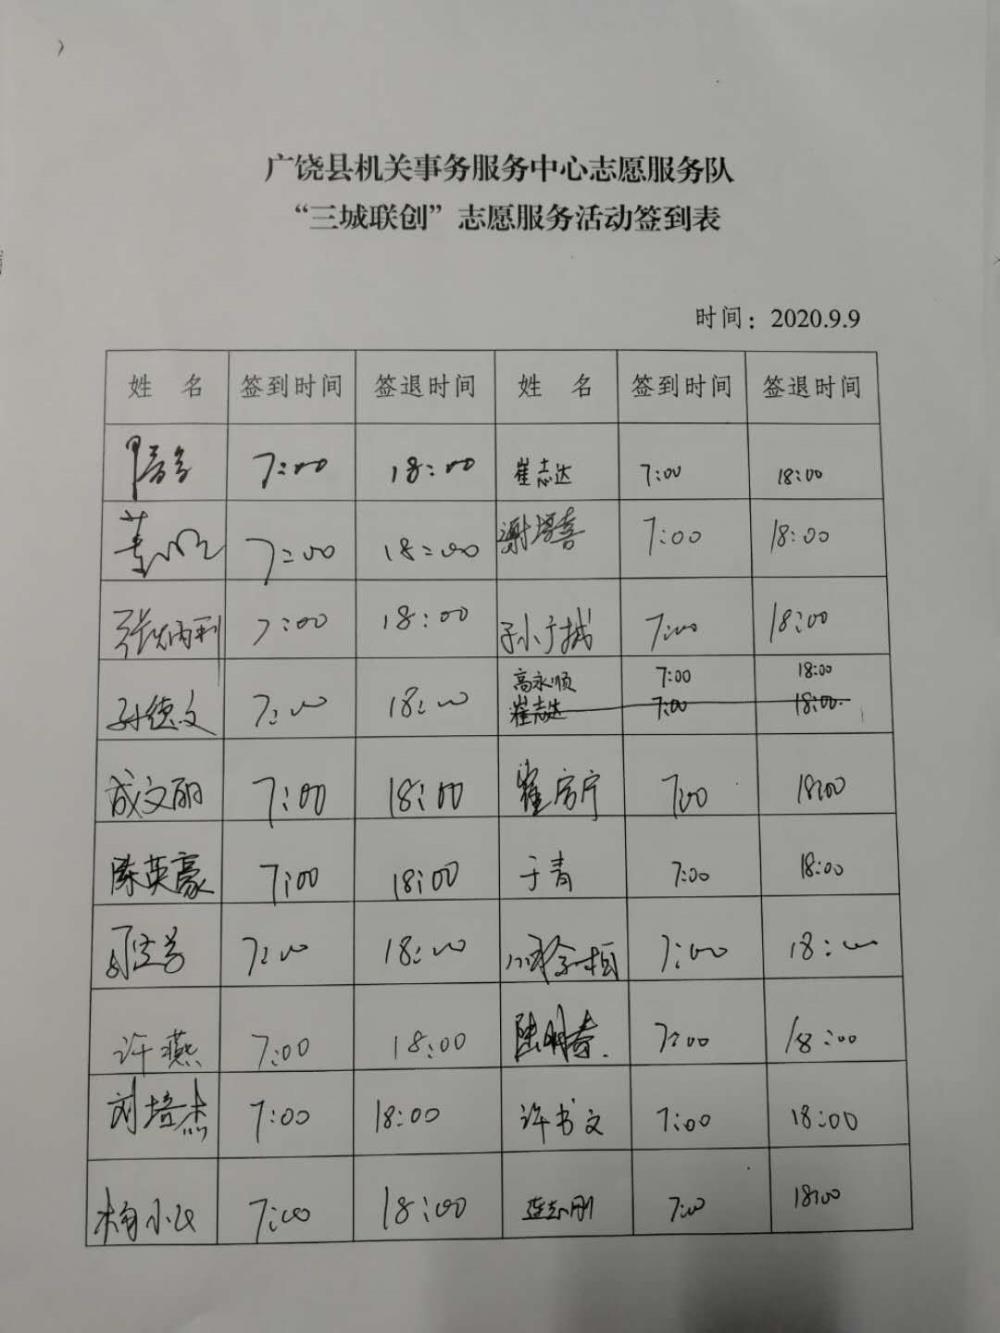 广饶县机关事务服务中心志愿服务队
“三城联创”志愿服务活动签到表
时间：2020.9.9
姓 名 签到时间 签退时间 姓 名 签到时间 签退时间
7:00 18:00 崔志达 7:00 18:00
7:00 18:00 谢培喜 7:00 18:00
张炳利 7:00 18:00 7:00 18:00
孙德文 7:00 18:00 高永顺 7:00 18:00
崔志达 7:00 18:00
成文丽 7:00 18:00 7:00 18:00
陈英豪 7:00 18:00 于青 7:00 18:00
7:00 18:00 7:00 18:00
许燕 7:00 18:00 陆明春 7:00 18:00
刘培杰 7:00 18:00 许书文 7:00 18:00
7:00 18:00 7:00 18:00